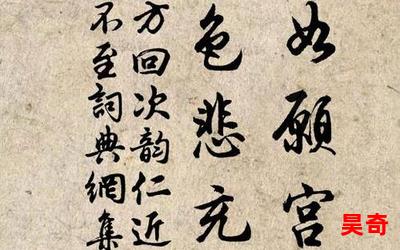 如願宫
色悲充
方回次韵仁近
不至詞典網集
昊奇